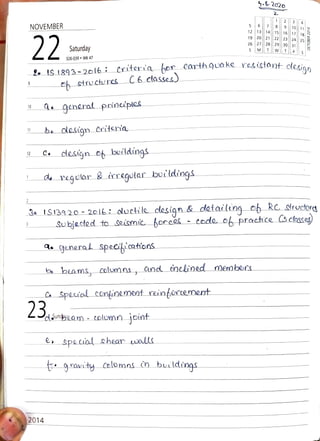 5.8.2020
2.
NOVEMBER
22 Saturday
326-039 • WK 47
2. IS 1893-2016 : criteria for earthquake resistant design
of structures (6 classes)
a. general principles
b. design criteria
c. design of buildings
d. regular & irregular buildings
3. IS13920-2016: ductile design & detailing of RC structures
subjected to seismic forces - code of practice (5 classes)
a. general specifications
b. beams, columns, and inclined members
c. special confinement reinforcement
23
d. beam - column joint
e. special shear walls
f. gravity colomns in buildings
2014